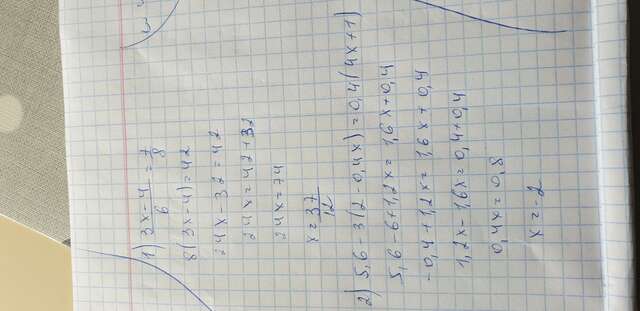 1) (3x-4)/6 = 7/8
8(3x-4)=42
24x-32=42
24x=42+32
24x=74
x=37/12
2) 5,6-3(2-0,4x)=0,4(4x+1)
5,6-6+1,2x=1,6x+0,4
-0,4+1,2x=1,6x+0,4
1,2x-1,6x=0,4+0,4
0,4x=0,8
x=-2